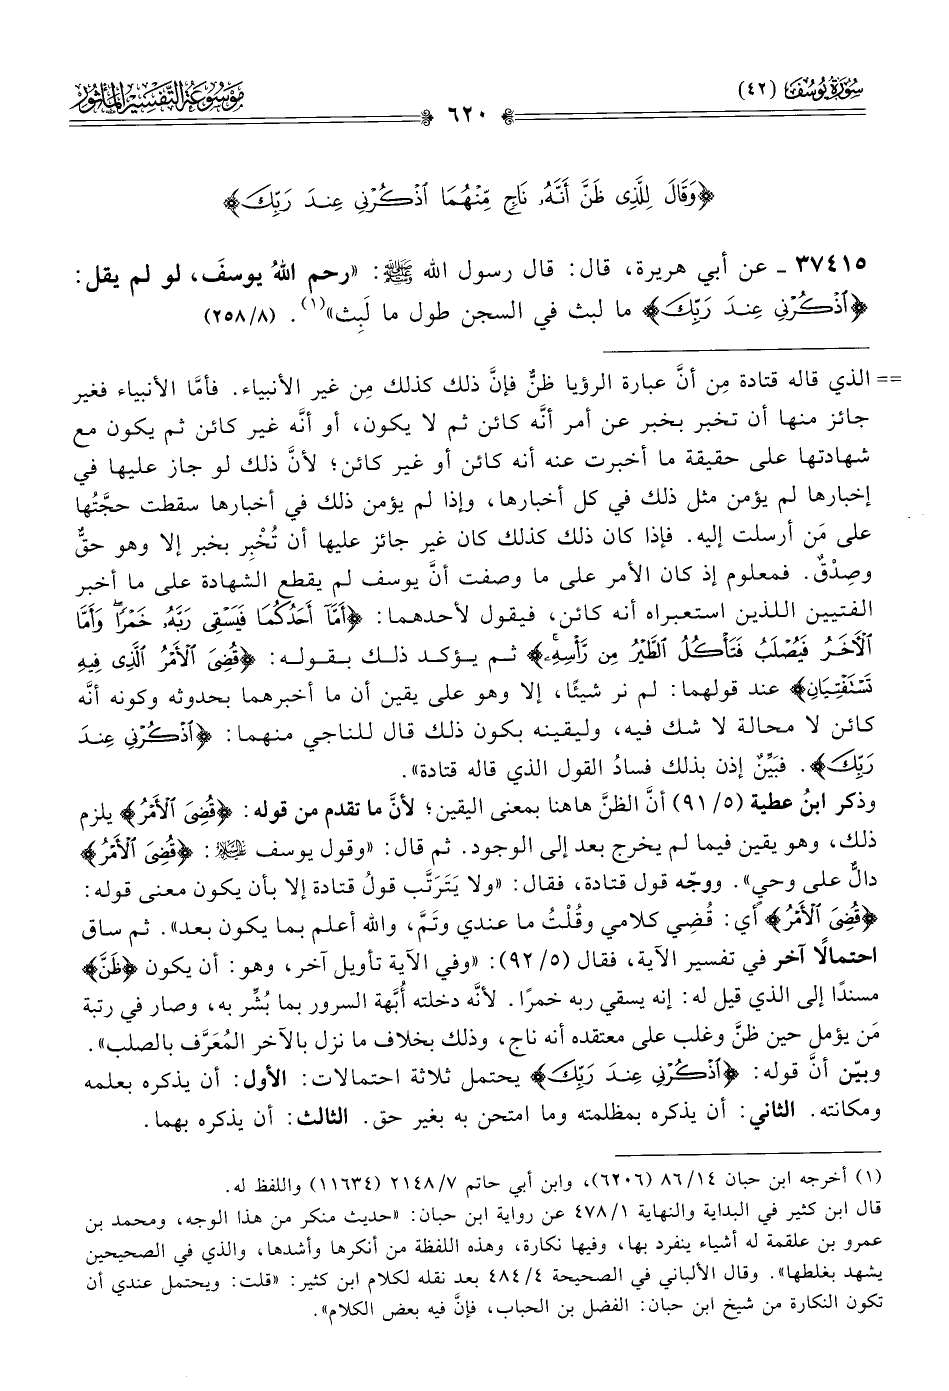 سُورَةُ يُوسُفَ (٤٢)
٦٢٠
مَوْسُوعَةُ التَّفْسِيرِ المَأْثُور
﴿وَقَالَ لِلَّذِى ظَنَّ أَنَّهُۥ نَاجٍ مِّنْهُمَا ٱذْكُرْنِى عِندَ رَبِّكَ﴾
٣٧٤١٥ ـ عن أبي هريرة، قال: قال رسول الله ﷺ: «رحم اللهُ يوسفَ، لو لم يقل:
﴿ٱذْكُرْنِى عِندَ رَبِّكَ﴾ ما لبث في السجن طول ما لَبِث»(١). (٢٥٨/٨)
== الذي قاله قتادة مِن أنَّ عبارة الرؤيا ظنٌّ فإنَّ ذلك كذلك مِن غير الأنبياء. فأمَّا الأنبياء فغير
جائز منها أن تخبر بخبر عن أمر أنَّه كائن ثم لا يكون، أو أنَّه غير كائن ثم يكون مع
شهادتها على حقيقة ما أخبرت عنه أنه كائن أو غير كائن؛ لأنَّ ذلك لو جاز عليها في
إخبارها لم يؤمن مثل ذلك في كل أخبارها، وإذا لم يؤمن ذلك في أخبارها سقطت حجَّتُها
على مَن أرسلت إليه. فإذا كان ذلك كذلك كان غير جائز عليها أن تُخْبِر بخبر إلا وهو حقٌّ
وصِدْقٌ. فمعلوم إذ كان الأمر على ما وصفت أنَّ يوسف لم يقطع الشهادة على ما أخبر
الفتيين اللذين استعبراه أنه كائن، فيقول لأحدهما: ﴿أَمَّآ أَحَدُكُمَا فَيَسْقِى رَبَّهُۥ خَمْرًا ۖ وَأَمَّا
ٱلْأَخَرُ فَيُصْلَبُ فَتَأْكُلُ ٱلطَّيْرُ مِن رَّأْسِهِۦ ۚ﴾ ثم يؤكد ذلك بقوله: ﴿قُضِىَ ٱلْأَمْرُ ٱلَّذِى فِيهِ
تَسْتَفْتِيَانِ﴾ عند قولهما: لم نر شيئًا، إلا وهو على يقين أن ما أخبرهما بحدوثه وكونه أنَّه
كائن لا محالة لا شك فيه، وليقينه بكون ذلك قال للناجي منهما: ﴿ٱذْكُرْنِى عِندَ
رَبِّكَ﴾. فبَيِّنٌ إذن بذلك فسادُ القول الذي قاله قتادة».
وذكر ابنُ عطية (٩١/٥) أنَّ الظنَّ هاهنا بمعنى اليقين؛ لأنَّ ما تقدم من قوله: ﴿قُضِىَ ٱلْأَمْرُ﴾ يلزم
ذلك، وهو يقين فيما لم يخرج بعد إلى الوجود. ثم قال: «وقول يوسف عليه السلام: ﴿قُضِىَ ٱلْأَمْرُ﴾
دالٌّ على وحيٍ». ووجّه قول قتادة، فقال: «ولا يَتَرَتَّب قولُ قتادة إلا بأن يكون معنى قوله:
﴿قُضِىَ ٱلْأَمْرُ﴾ أي: قُضِي كلامي وقُلْتُ ما عندي وتَمَّ، والله أعلم بما يكون بعد». ثم ساق
احتمالًا آخر في تفسير الآية، فقال (٩٢/٥): «وفي الآية تأويل آخر، وهو: أن يكون ﴿ظَنَّ﴾
مسندًا إلى الذي قيل له: إنه يسقي ربه خمرًا. لأنَّه دخلته أُبَّهة السرور بما بُشِّر به، وصار في رتبة
مَن يؤمل حين ظنَّ وغلب على معتقده أنه ناج، وذلك بخلاف ما نزل بالآخر المُعَرَّف بالصلب».
وبيّن أنَّ قوله: ﴿ٱذْكُرْنِى عِندَ رَبِّكَ﴾ يحتمل ثلاثة احتمالات: الأول: أن يذكره بعلمه
ومكانته. الثاني: أن يذكره بمظلمته وما امتحن به بغير حق. الثالث: أن يذكره بهما.
(١) أخرجه ابن حبان ٨٦/١٤ (٦٢٠٦)، وابن أبي حاتم ٢١٤٨/٧ (١١٦٣٤) واللفظ له.
قال ابن كثير في البداية والنهاية ٤٧٨/١ عن رواية ابن حبان: «حديث منكر من هذا الوجه، ومحمد بن
عمرو بن علقمة له أشياء ينفرد بها، وفيها نكارة، وهذه اللفظة من أنكرها وأشدها، والذي في الصحيحين
يشهد بغلطها». وقال الألباني في الصحيحة ٤٨٤/٤ بعد نقله لكلام ابن كثير: «قلت: ويحتمل عندي أن
تكون النكارة من شيخ ابن حبان: الفضل بن الحباب، فإنَّ فيه بعض الكلام».